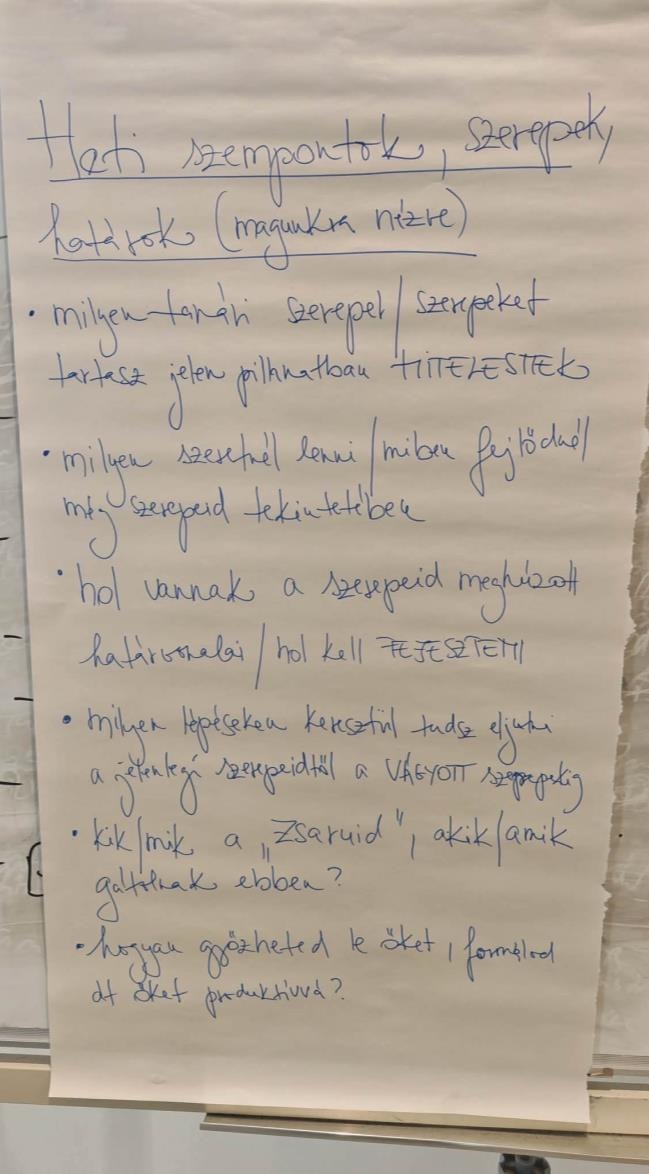 Heti szempontok, szerepek,
határok (magunkra nézve)
• milyen tanári szerepet / szerepeket
tartasz jelen pillanatban HITELESNEK
• milyen szeretnél lenni / miben fejlődnél
még szerepeid tekintetében
• hol vannak a szerepeid meghúzott
határvonalai / hol kell FEJESZTENI
• milyen lépéseken keresztül tudsz eljutni
a jelenlegi szerepeidtől a VÁGYOTT szerepekig
• kik/mik a „Zsaruid", akik/amik
gátolnak ebben?
• hogyan győzheted le őket, formálod
át őket produktívvá?